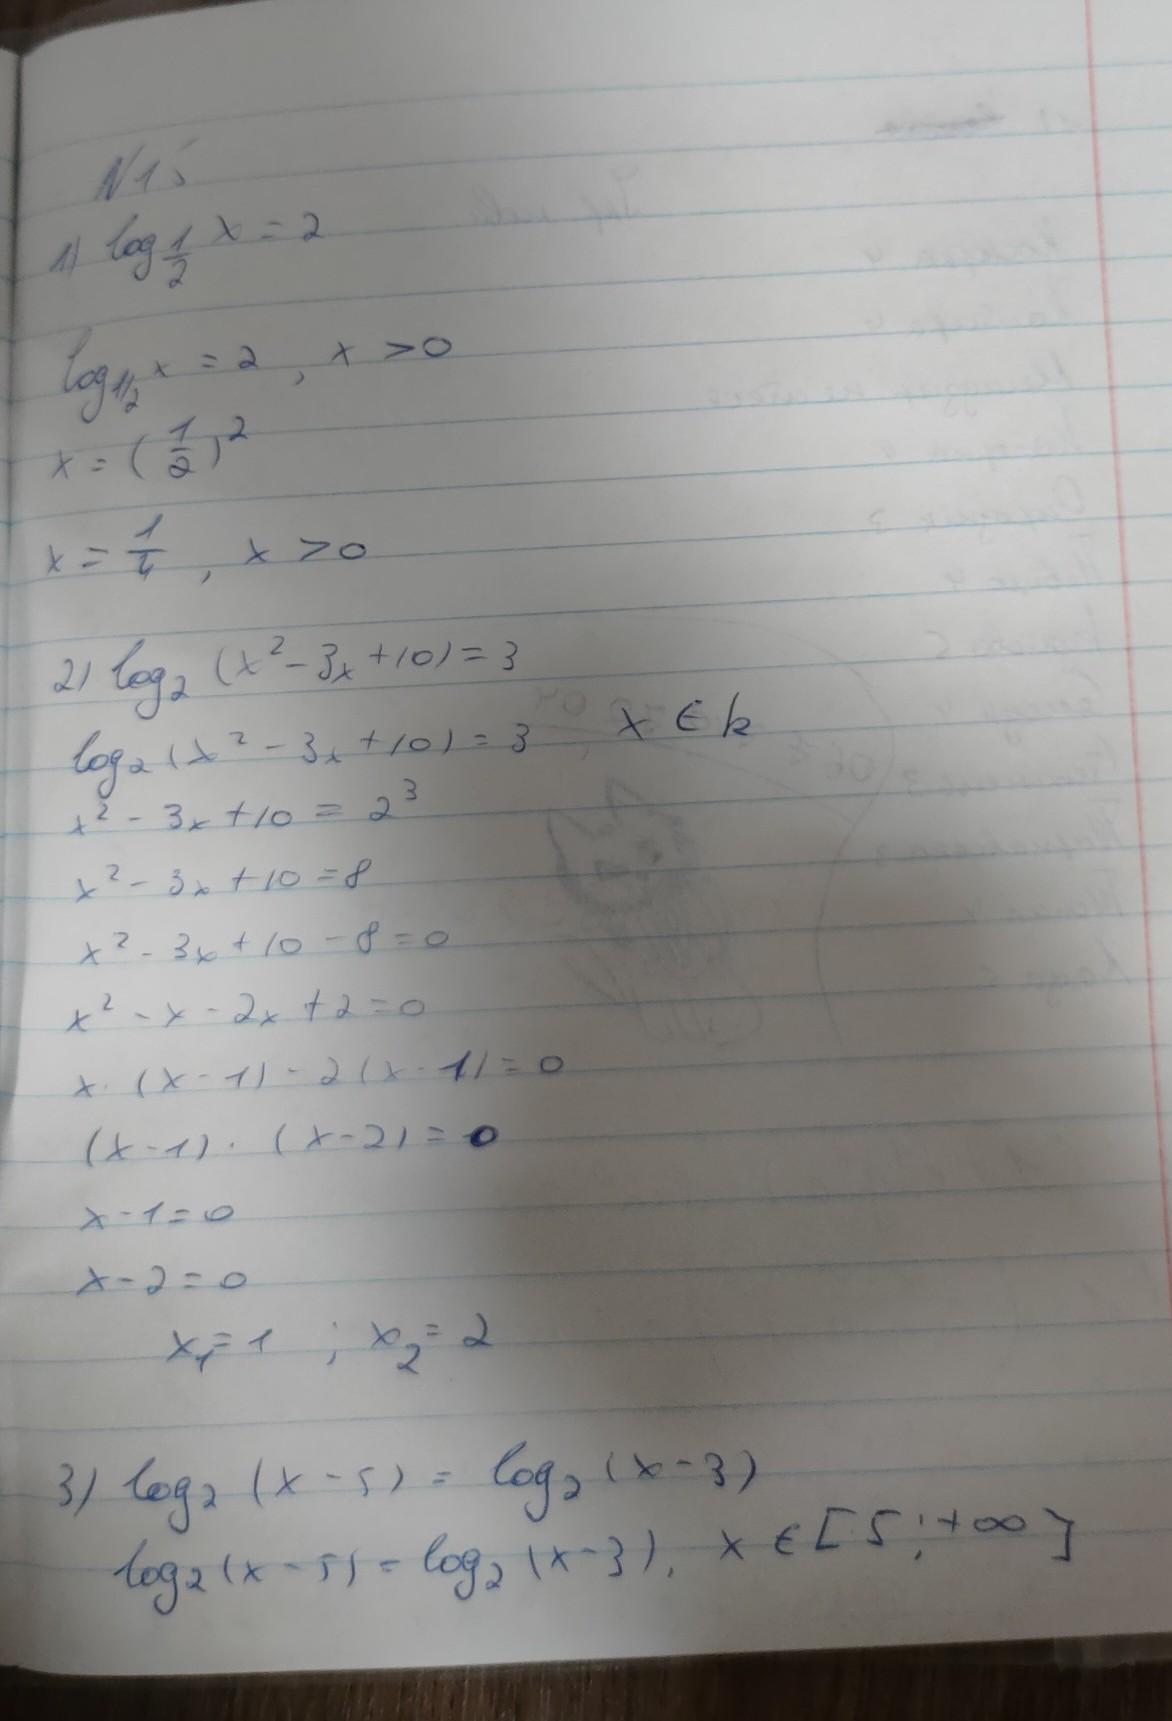 N15
1) log 1/2 x = 2
log1/2 x = 2, x > 0
x = (1/2)^2
x = 1/4, x > 0
2) log₂ (x² - 3x + 10) = 3
log₂ (x² - 3x + 10) = 3, x ∈ k
x² - 3x + 10 = 2³
x² - 3x + 10 = 8
x² - 3x + 10 - 8 = 0
x² - x - 2x + 2 = 0
x · (x - 1) - 2(x - 1) = 0
(x - 1) · (x - 2) = 0
x - 1 = 0
x - 2 = 0
x₁ = 1 ; x₂ = 2
3) log₂ (x - 5) = log₂ (x - 3)
log₂ (x - 5) = log₂ (x - 3), x ∈ [5; +∞]